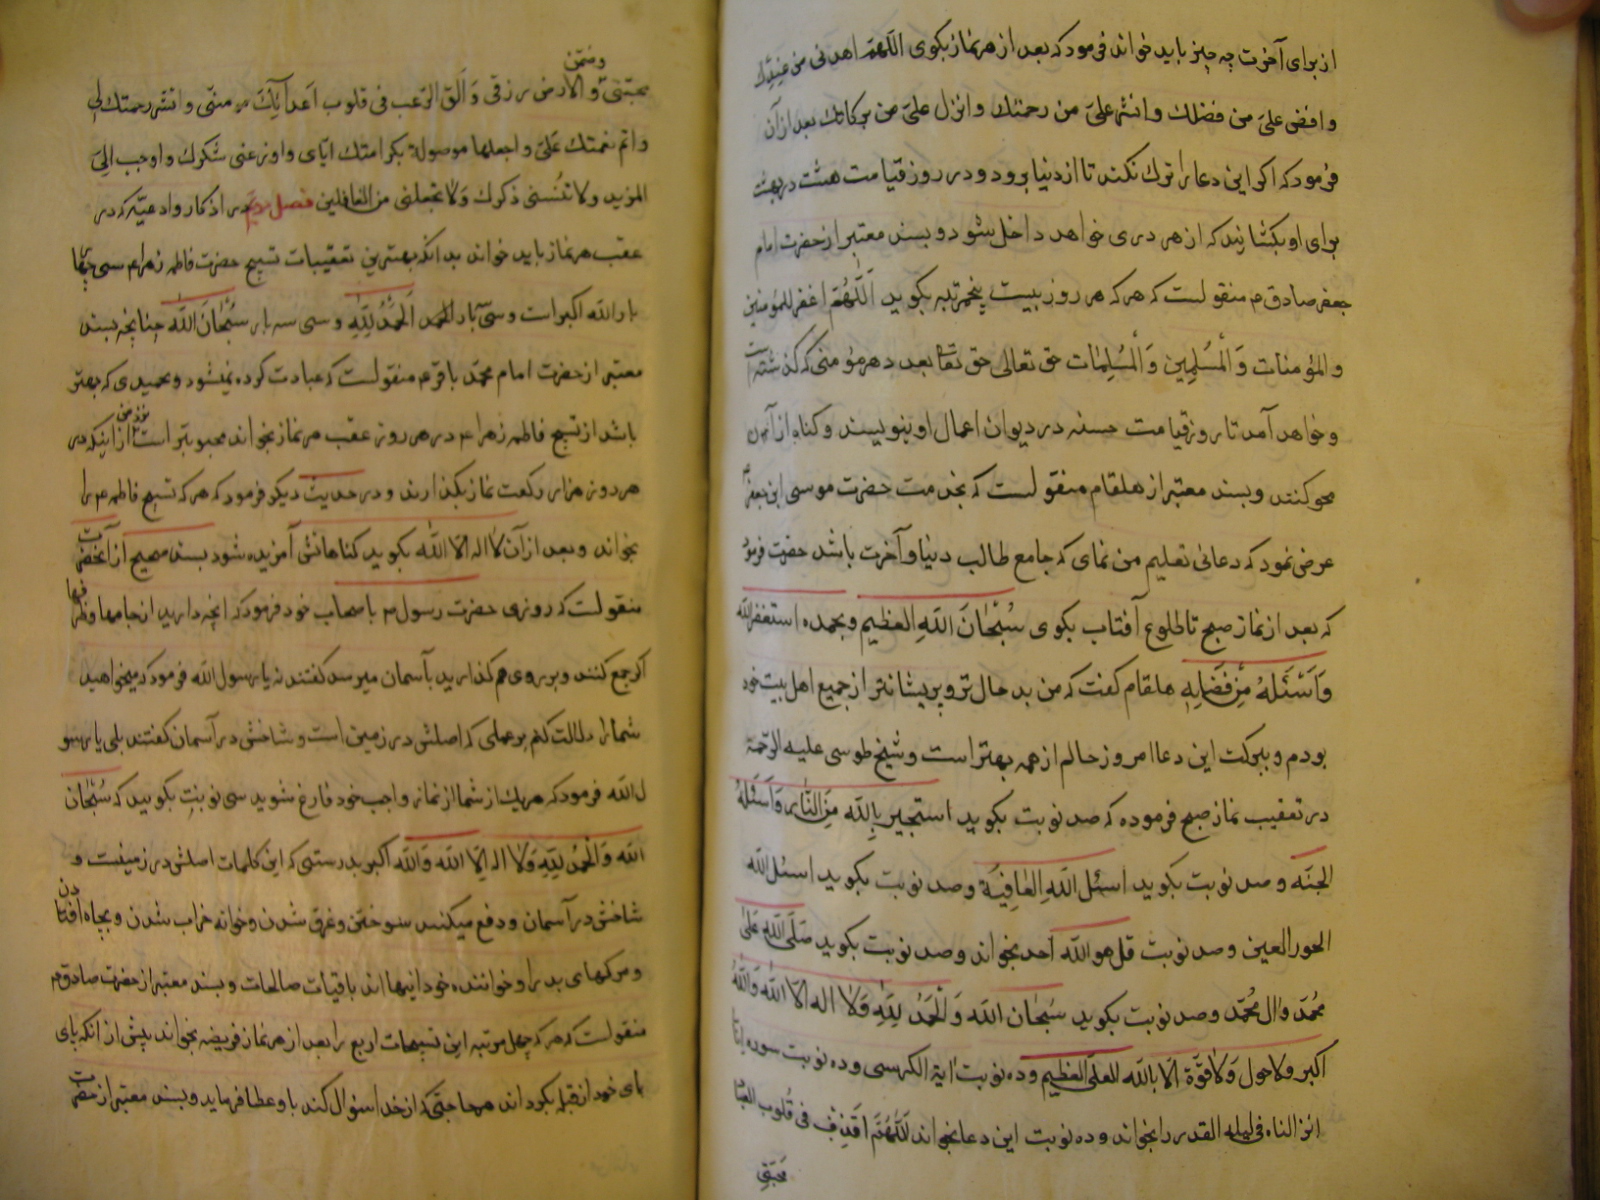 از برای آخرت چه چیز باید خواند فرمود که بعد از هر نماز بکوی اللهم اهدنی من عندك
و افض علیّ من فضلك و انشر علیّ من رحمتك و انزل علیّ من برکاتك بعد از آن
فرمود که اکر این دعا را ترك نکند تا از دنیا برود و در روز قیامت هشت در بهشت
برای او بکشایند که از هر دری خواهد داخل شود و بسند معتبر از حضرت امام
جعفر صادق م منقولست که هر که هر روز بیست پنجمرتبه بکوید اَللّٰهُمَّ اغفر للمؤمنین
والمؤمنات وَالْمُسْلِمِین وَالْمُسْلِمَات حق تعالی بعدد هر مؤمنی که کذشته است
و خواهد آمد تا روز قیامت حسنه در دیوان اعمال او بنویسند و کناه از آن
محو کنند و بسند معتبر از هلقام منقولست که بخدمت حضرت موسی ابن جعفر
عرض نمود که دعائی تعلیم من نمای که جامع طالب دنیا و آخرت باشد حضرت فرمود
که بعد از نماز صبح تا طلوع آفتاب بکوی سُبْحَانَ اللهِ العظیم و بحمده استغفر الله
وَاَسْئَلُهُ مِنْ فَضْلِهِ هلقام کفت که من بد حال تر و پریشانتر از جمیع اهل بیت خود
بودم و ببرکت این دعا امروز حالم از همه بهتر است و شیخ طوسی علیه الرّحمة
در تعقیب نماز صبح فرموده که صد نوبت بکوید استجیر بِاللهِ مِنَ النَّار وَاَسْئَلُهُ
الجنّه و صد نوبت بکوید اسئل اللهَ العَافِیَة و صد نوبت بکوید اسئل الله
الحور العین و صد نوبت قل هو الله احد بخواند و صد نوبت بکوید صَلَّی اللهُ عَلیٰ
مُحمّد وَال مُحمّد و صد نوبت بکوید سُبحَان الله وَالْحَمْدُ لِلّٰهِ وَلَا اله الّا الله وَاللهُ
اکبر ولا حول وَلا قُوَّة الّا بالله العلی العظیم و ده نوبت ایة الکرسی و ده نوبت سوره انا
انزلناه فی لیله القدر را بخواند و ده نوبت این دعا بخواند اَللّٰهُمَّ اقذِف فی قُلوب العباد
محبّتی
و ضمّن
محبّتی و الارض رزقی و اَلق الرّعب فی قلوب اعدآئِكَ منّی و انشر رحمتك لی
و اتم نعمتك علیّ و اجعلها موصولة بکرامتك ایّای و اوزعنی شکرك و اوجب الیّ
المزید ولا تُنسنی ذکرك وَلا تجعلنی من الغافلین فصل در اذکار و ادعیّه که در
عقب هر نماز باید خواند بدانکه بهترین تعقیبات تسبیح حضرت فاطمه زهرا م سی چهار
بار الله اکبر است و سی بار اَلحَمْدُ لِلّٰهِ و سی سه بار سُبْحَانَ اللهِ چنانچه بسند
معتبر از حضرت امام محمّد باقر م منقولست که عبادت کرده نمیشود و تحمیدی که بهتر
باشد از تسبیح فاطمه زهرا م در هر روز عقب هر نماز بخواند محبوبتر است نزد من از اینکه در
هر روز هزار رکعت نماز بکذارند و در حدیث دیکر فرمود که هر که تسبیح فاطمه م را
بخواند و بعد از آن لا اله الّا الله بکوید کناهانش آمرزیده شود بسند صحیح از آنحضرت
منقولست که روزی حضرت رسول م باصحاب خود فرمود که انچه دارید از جامها و ظرفها
اکر جمع کنند و بر روی هم کذارید بآسمان میرسد کفتند نه یا رسول الله فرمود که میخواهید
شما را دلالت کنم بر عملی که اصلش در زمین است و شاخش در آسمان کفتند بلی یا رسو
ل الله فرمود که هریك از شما از نماز واجب خود فارغ شوید سی نوبت بکوبید که سُبْحَان
الله وَالْحَمْدُ لِلّٰهِ وَلا اله اِلّا الله وَالله اکبر بدرستی که این کلمات اصلش در زمینست و
شاخش در آسمان و دفع میکنند سوختن و غرق شدن و خانه خراب شدن و بچاه افتادن
و مرکهای بد را و خواننده خود اینها اند باقیات صالحات و بسند معتبر از حضرت صادق م
منقولست که هر که چهل مرتبه این تسبیحات اربع را بعد از هر نماز فریضه بخواند پیش از انکه پای
پای خود از قبله بکرداند هر حاجتی که از خدا سؤال کند باو عطا فرماید و بسند معتبر از حضرت